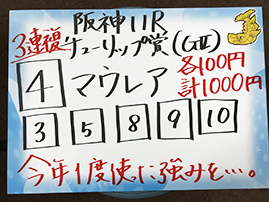 阪神11R
3連複 チューリップ賞(GⅡ)
4 マウレア 各100円
計1000円
3 5 8 9 10
今年1度使た強みを…。